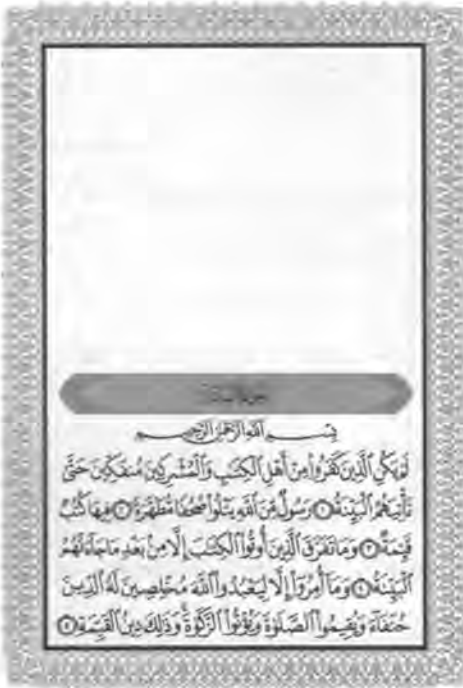 بِسْمِ اللَّهِ الرَّحْمَٰنِ الرَّحِيمِ
لَمْ يَكُنِ الَّذِينَ كَفَرُوا مِنْ أَهْلِ الْكِتَٰبِ وَالْمُشْرِكِينَ مُنفَكِّينَ حَتَّىٰ
تَأْتِيَهُمُ الْبَيِّنَةُ ١ رَسُولٌ مِّنَ اللَّهِ يَتْلُوا صُحُفًا مُّطَهَّرَةً ٢ فِيهَا كُتُبٌ
قَيِّمَةٌ ٣ وَمَا تَفَرَّقَ الَّذِينَ أُوتُوا الْكِتَٰبَ إِلَّا مِنْ بَعْدِ مَا جَاءَتْهُمُ
الْبَيِّنَةُ ٤ وَمَا أُمِرُوا إِلَّا لِيَعْبُدُوا اللَّهَ مُخْلِصِينَ لَهُ الدِّينَ
حُنَفَاءَ وَيُقِيمُوا الصَّلَوٰةَ وَيُؤْتُوا الزَّكَوٰةَ وَذَٰلِكَ دِينُ الْقَيِّمَةِ ٥